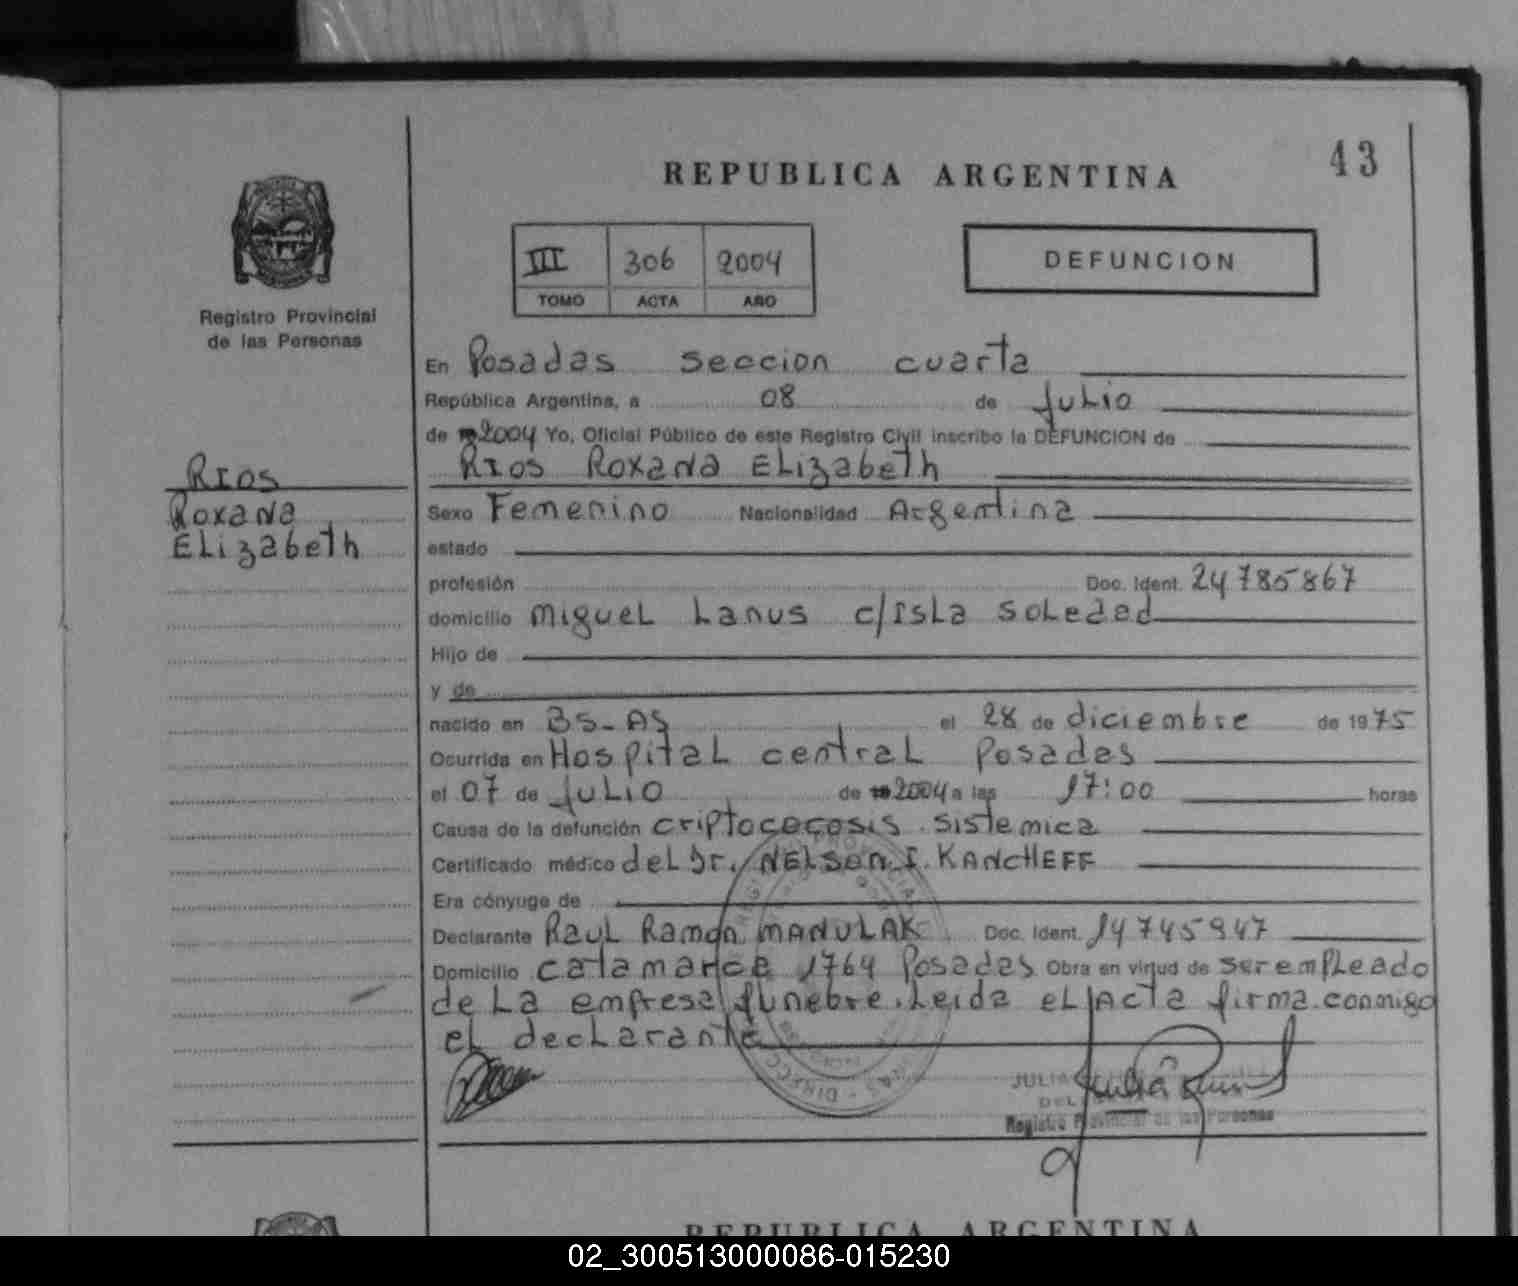 43
REPUBLICA ARGENTINA
III 306 2004
TOMO ACTA AÑO
DEFUNCION
Registro Provincial
de las Personas
En Posadas seccion cuarta
República Argentina, a 08 de Julio
de 2004 Yo, Oficial Público de este Registro Civil inscribo la DEFUNCION de
Rios Roxana Elizabeth
Rios
Roxana
Elizabeth
Sexo Femenino Nacionalidad Argentina
estado
profesión Doc. Ident. 24785867
domicilio Miguel Lanus c/Isla Soledad
Hijo de
y de
nacido en BS-AS el 28 de diciembre de 1975
Ocurrida en Hospital central Posadas
el 07 de Julio de 2004 a las 17:00 horas
Causa de la defunción criptococosis sistemica
Certificado médico del Dr. NELSON I. KANCHEFF
Era cónyuge de
Declarante Raul Ramon MANULAK Doc. Ident. 14745947
Domicilio catamarca 1764 Posadas Obra en virtud de ser empleado
de la empresa funebre. Leida el Acta firma conmigo
el declarante
JULIA
DEL
Registro Provincial de las Personas
REPUBLICA ARGENTINA
02_300513000086-015230